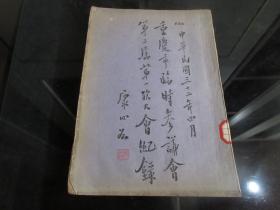 中華民國三十二年四月
重慶市臨時參議會
第二屆第一次大會紀錄
康心如